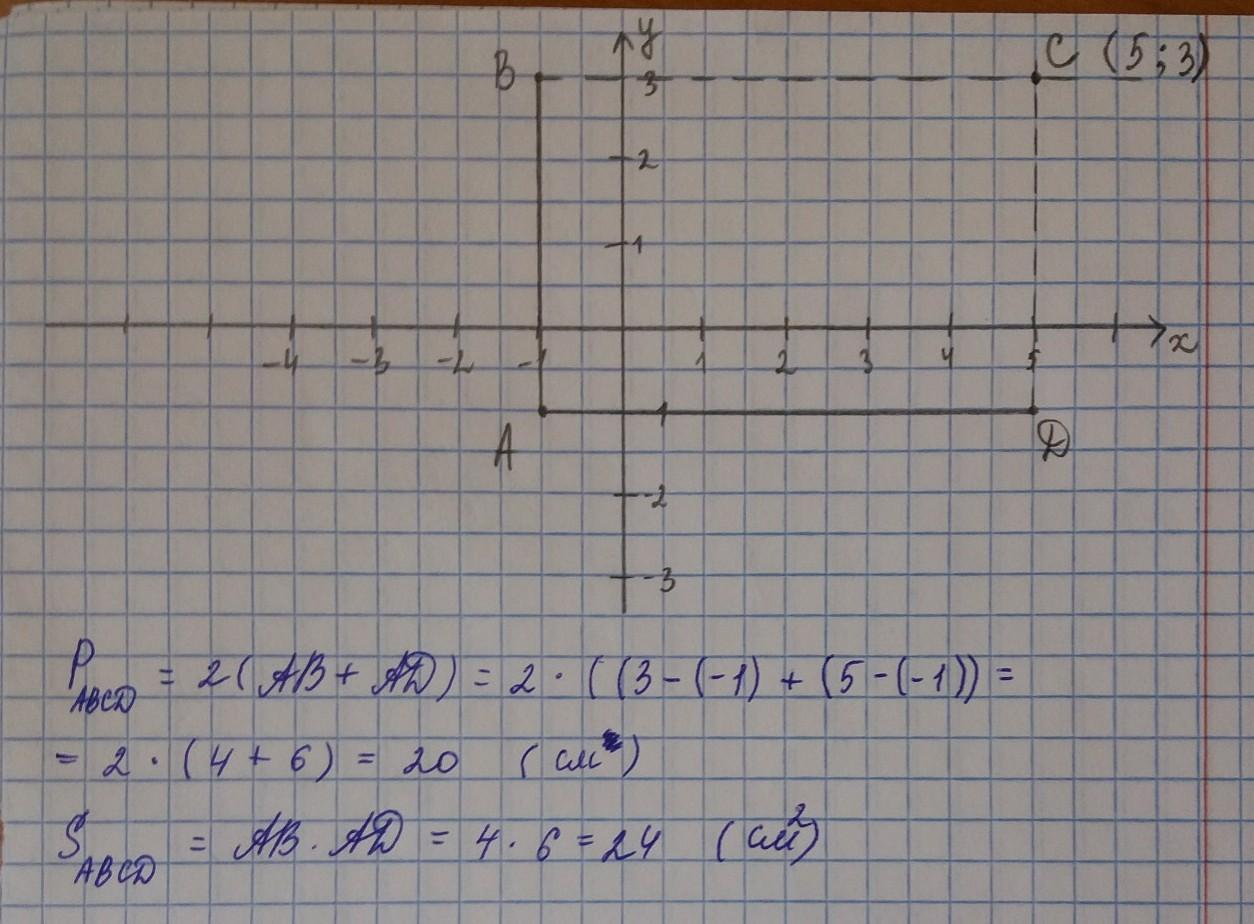 y
B 3 C (5 ; 3)
2
1
-4 -3 -2 -1 1 2 3 4 5 x
-1
A D
-2
-3
P ABCD = 2 ( AB + AD ) = 2 · ( (3 - (-1) + (5 - (-1)) =
= 2 · ( 4 + 6 ) = 20 ( см )
S ABCD = AB · AD = 4 · 6 = 24 ( см² )